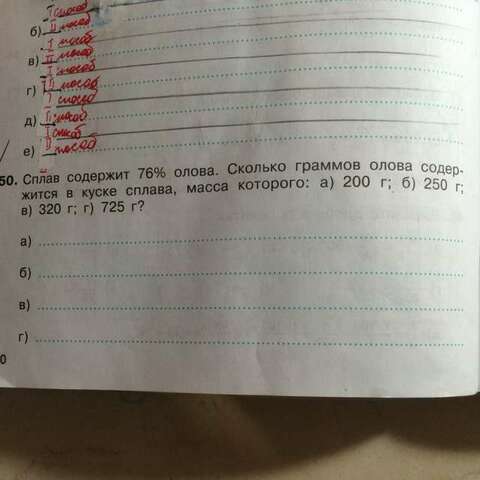 I способ
б) II способ
I способ
в) II способ
I способ
г) II способ
I способ
д) II способ
I способ
е) II способ
50. Сплав содержит 76% олова. Сколько граммов олова содер-
жится в куске сплава, масса которого: а) 200 г; б) 250 г;
в) 320 г; г) 725 г?
а)
б)
в)
г)
0